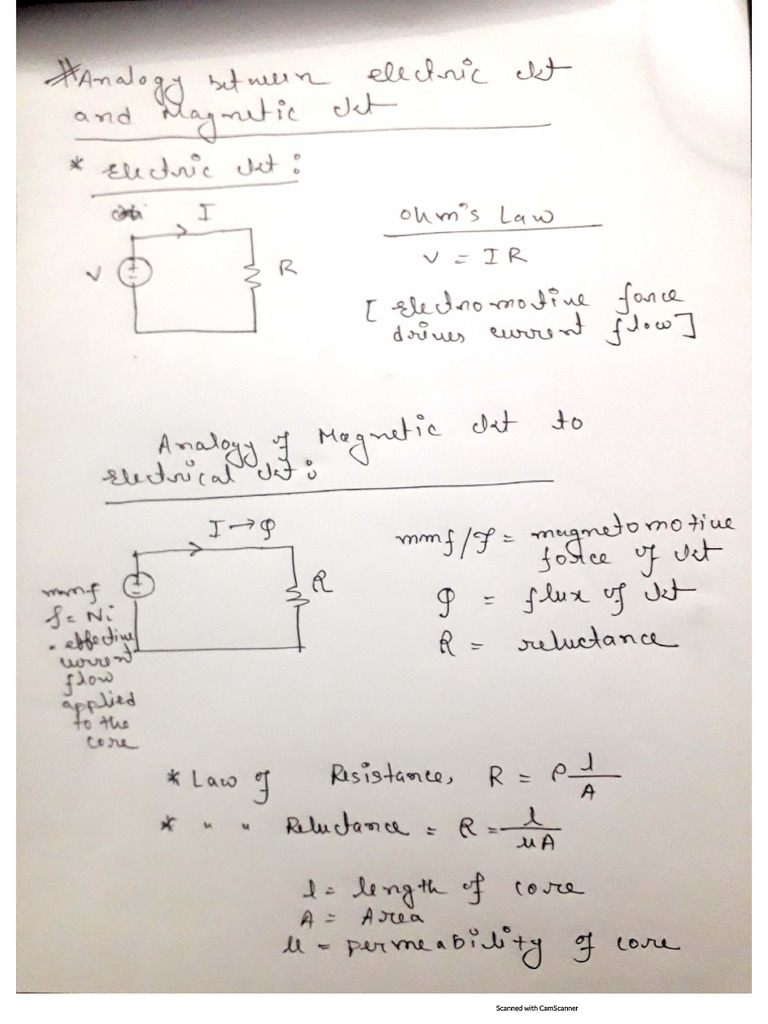 # Analogy between electric ckt
and Magnetic ckt
* Electric ckt :
I
V
R
Ohm's Law
V = IR
[ Electromotive force
drives current flow ]
Analogy of Magnetic ckt to
Electrical ckt :
I → φ
R
mmf
f = Ni
- effective
current
flow
applied
to the
core
mmf / F = magnetomotive
force of ckt
φ = flux of ckt
R = reluctance
* Law of Resistance, R = ρ l / A
* " " Reluctance = R = l / μA
l = length of core
A = Area
μ = permeability of core
Scanned with CamScanner